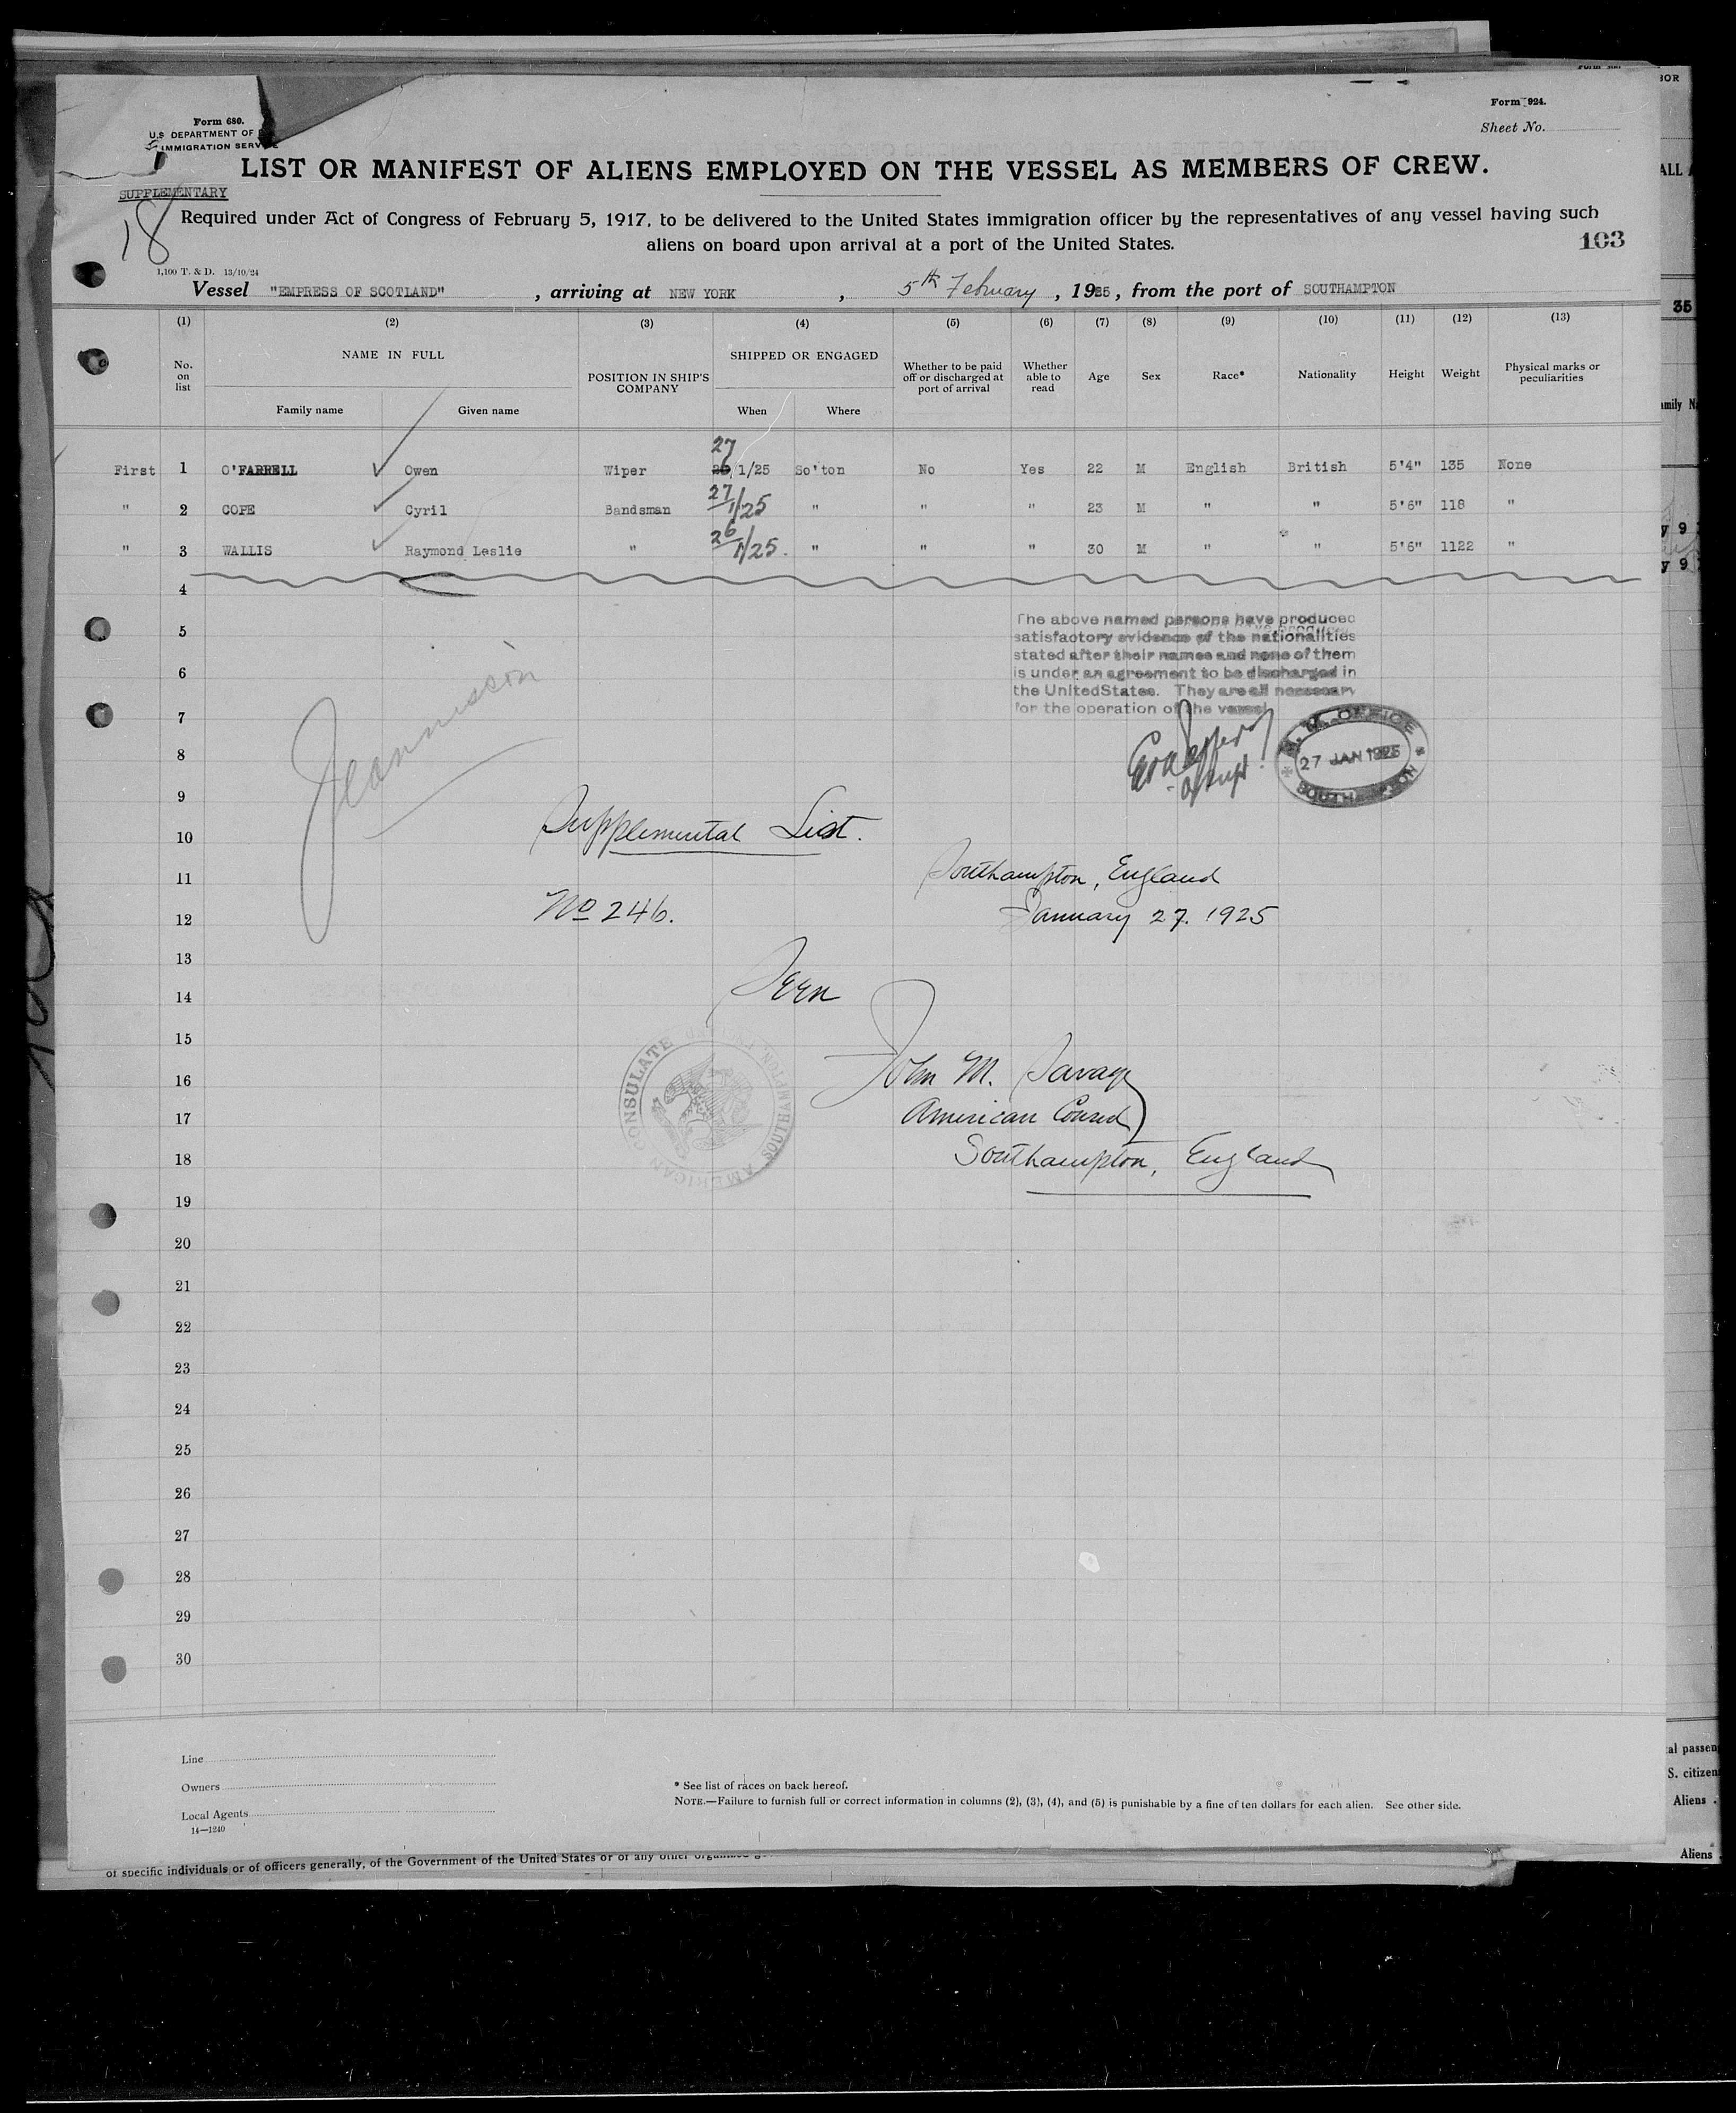 Form 680.
U.S. DEPARTMENT OF
IMMIGRATION SERVICE
Form 924.
Sheet No.
LIST OR MANIFEST OF ALIENS EMPLOYED ON THE VESSEL AS MEMBERS OF CREW.
SUPPLEMENTARY
18
Required under Act of Congress of February 5, 1917, to be delivered to the United States immigration officer by the representatives of any vessel having such
aliens on board upon arrival at a port of the United States.
103
1,100 T. & D. 13/10/24
Vessel "EMPRESS OF SCOTLAND" , arriving at NEW YORK , 5th February , 1925, from the port of SOUTHAMPTON
(1) (2) (3) (4) (5) (6) (7) (8) (9) (10) (11) (12) (13)
No. on list NAME IN FULL POSITION IN SHIP'S COMPANY SHIPPED OR ENGAGED Whether to be paid off or discharged at port of arrival Whether able to read Age Sex Race* Nationality Height Weight Physical marks or peculiarities
Family name Given name When Where
27
First 1 O'FARRELL Owen Wiper 26/1/25 So'ton No Yes 22 M English British 5'4" 135 None
" 2 COPE Cyril Bandsman 27/1/25 " " " 23 M " " 5'6" 118 "
" 3 WALLIS Raymond Leslie " 26/1/25. " " " 30 M " " 5'6" 1122 "
4
The above named persons have produced
5
satisfactory evidence of the nationalities
stated after their names and none of them
6
is under an agreement to be discharged in
the United States. They are all necessary
for the operation of the vessel
7
8
27 JAN 1925
9
Supplemental List.
10
11
Southampton, England
12
No 246.
January 27. 1925
13
14
Seen
15
AMERICAN CONSULATE
SOUTHAMPTON,
16
John M. Savage
17
American Consul
18
Southampton, England
19
20
21
22
23
24
25
26
27
28
29
30
Line
Owners
Local Agents
14—1240
* See list of races on back hereof.
NOTE.—Failure to furnish full or correct information in columns (2), (3), (4), and (5) is punishable by a fine of ten dollars for each alien. See other side.
of specific individuals or of officers generally, of the Government of the United States or of any other
35
Aliens
Aliens